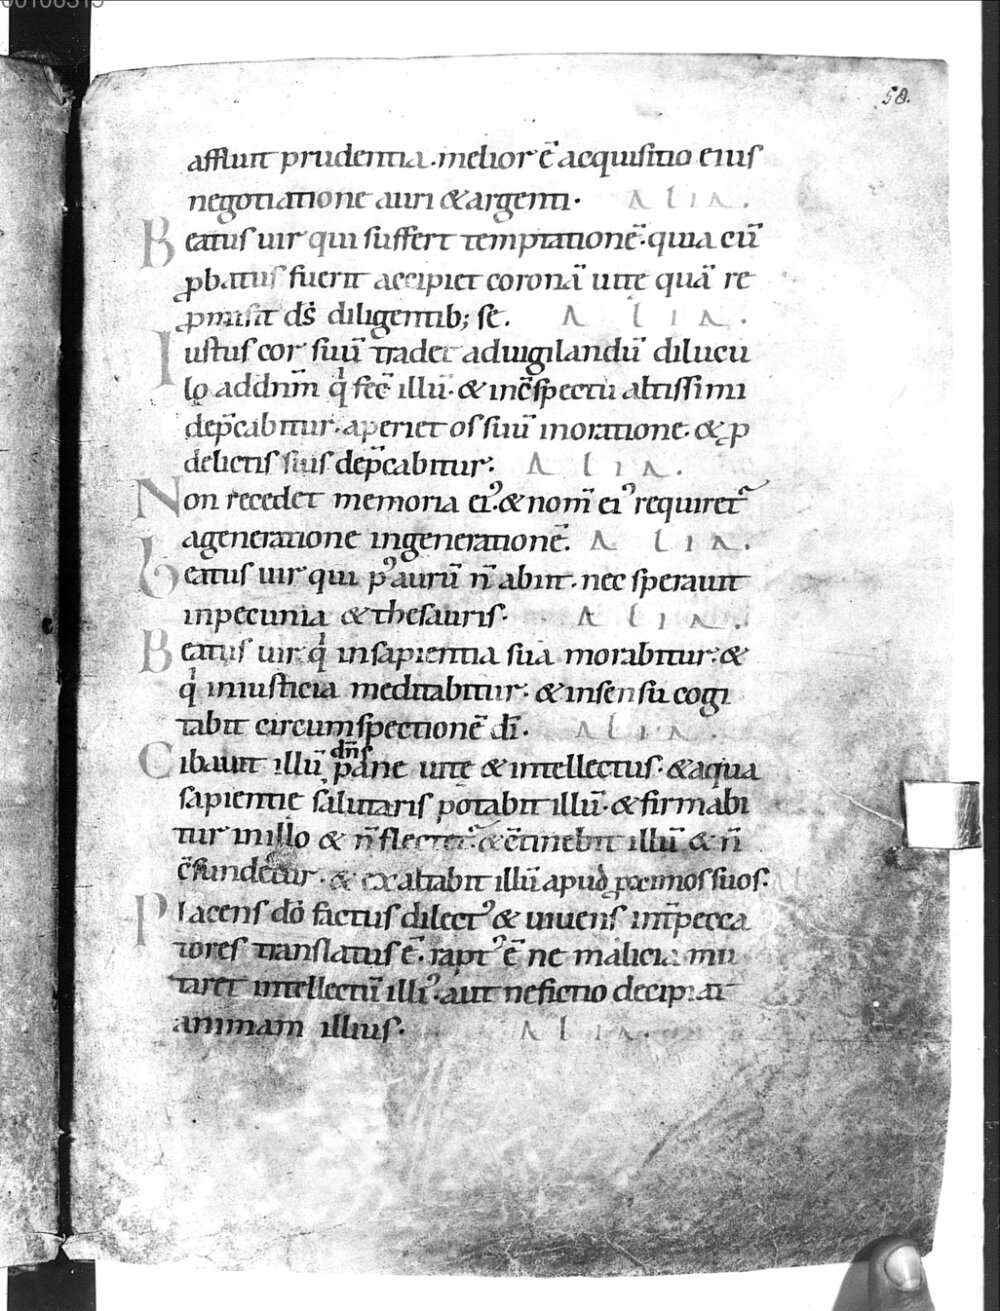 00106315
58.
affluit prudentia. melior ē acquisitio eius
negotiatione auri & argenti. ALIA.
Beatus uir qui suffert temptationē. quia cū
ꝓbatus fuerit accipiet coronā uite quā re
ꝓmisit dS̄ diligentib; se. ALIA.
Iustus cor suū tradet aduigilandū dilucu
lo addn̄m q̇ fec̄ illū. & inc̄spectu altissimi
dep̄cabitur. aperiet os suū inoratione. & ꝓ
delictis suis dep̄cabitur. ALIA.
Non recedet memoria ei᾽. & nom̄ ei᾽ requiret᷑
ageneratione ingenerationē. ALIA.
beatus uir qui p᾽ aurū n̄ abiit. nec sperauit
inpecunia & thesauris. ALIA.
Beatus uir q̇ insapientia sua morabitur. &
q̇ iniusticia meditabitur. & insensu cogi
tabit circumspectionē dī. ALIA.
Cibauit illū dn̄s pane uite & intellectus. & aqua
sapientię salutaris potabit illū. & firmabi
tur inillo & n̄ flectet᷑. & c̄tinebit illū & n̄
c̄fundetur. & exaltabit illū apud ꝓximos suos.
Placens dō factus dilect᾽ & uiuens int̄pecca
tores translatus ē. rapt᾽ ē ne malicia mu
taret intellectū illi᾽. aut ne fictio decipiat
animam illius. ALIA.